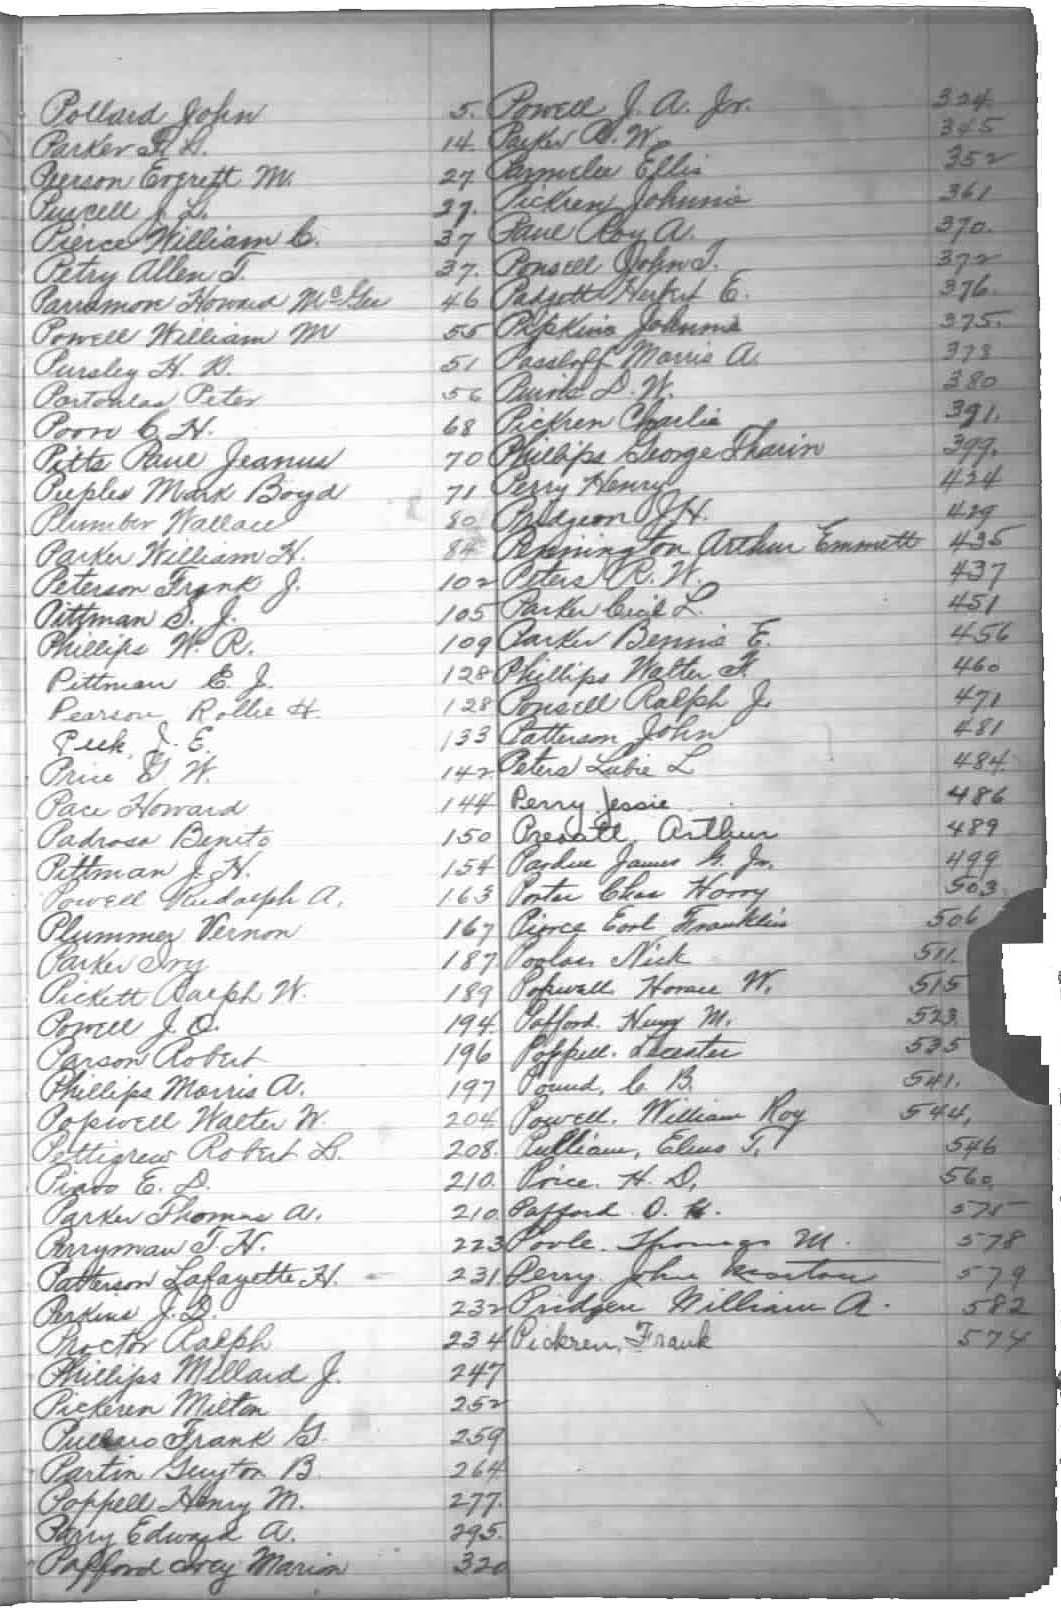 Pollard John 5.
Parker F. G. 14.
Peerson Everett M. 27
Purcell J. L. 27.
Pierce William C. 37
Petry Allen T. 37.
Parramon Howard McGee 46
Powell William M 55
Pursley H. D. 51
Partoulas Peter 56
Poon C. H. 68
Pitts Paul Jeanus 70
Peeples Mark Boyd 71
Plumber Wallace 80
Parker William H. 84
Peterson Frank J. 102
Pittman S. J. 105
Phillips W. R. 109
Pittman E. J. 128
Pearson Rollie H. 128
Peek, J. E. 133
Price G W. 142
Pace Howard 144
Padrosa Benito 150
Pittman J. H. 154
Powell Rudolph A. 163
Plummer Vernon 167
Parker Ivy 187
Pickett Ralph W. 189
Powell J. O. 194
Parson Robert 196
Phillips Morris A. 197
Popwell Walter W. 204
Pettigrew Robert L. 208.
E. D. 210.
Parker Thomas A. 210
Perryman T. H. 223
Patterson Lafayette H. 231
Perkins J. D. 232
Proctor Ralph 234
Phillips Millard J. 247
Pickeren Milton 252
Frank G. 259
Partin Guyton B 264
Poppell Henry M. 277.
Parry Edward A. 295.
Pafford Ivey Marion 320
Powell J. A. Jr. 324.
Parker B. W. 345
Parmelee Ellis 352
Pickren Johnnie 361
Paul Roy A. 370.
Ponsell John T. 372
Padgett Herbert E. 376.
Pipkins Johnnie 375.
Passloff Morris A. 378
D. W. 380
Pickren Charlie 391.
Phillips George Tharin 399.
Perry Henry 424
Pridgeon J. H. 429
Pennington Arthur Emmett 435
Peters R. W. 437
Parker Cecil L. 451
Parker Bennie E. 456
Phillips Walter F. 460
Ponsell Ralph J. 471
Patterson John 481
Peters Lubie L 484.
Perry Jessie 486
Prevatt, Arthur 489
James G. Jr. 499
Porter Chas Harry 503
Pierce Earl Franklin 506
Poolas Nick 511.
Popwell Horace W. 515
Pafford. Henry M. 523.
Poppell. Leicester 535
Pound, C. B. 541.
Powell. William Roy 544.
Pulliam, Elmo T. 546
Price. H. D. 560.
Pafford. O. H. 575
Poole. Thomas M. 578
Perry John 579
Pridgen William A. 582
Pickren, Frank 574